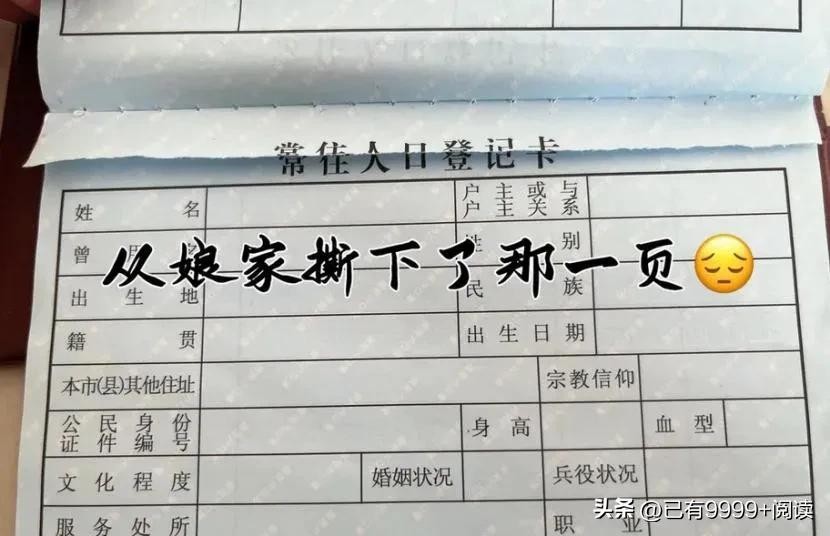 常住人口登记卡
姓名
户主或与
户主关系
曾用
性别
从娘家撕下了那一页
出生地
民族
籍贯
出生日期
本市(县)其他住址
宗教信仰
公民身份
证件编号
身高
血型
文化程度
婚姻状况
兵役状况
服务处所
职业
头条 @已有9999+阅读